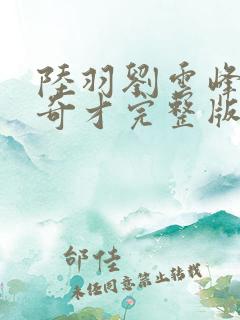 陸羽劉雪峰
奇才完整版
邰佳
未经同意禁止转载